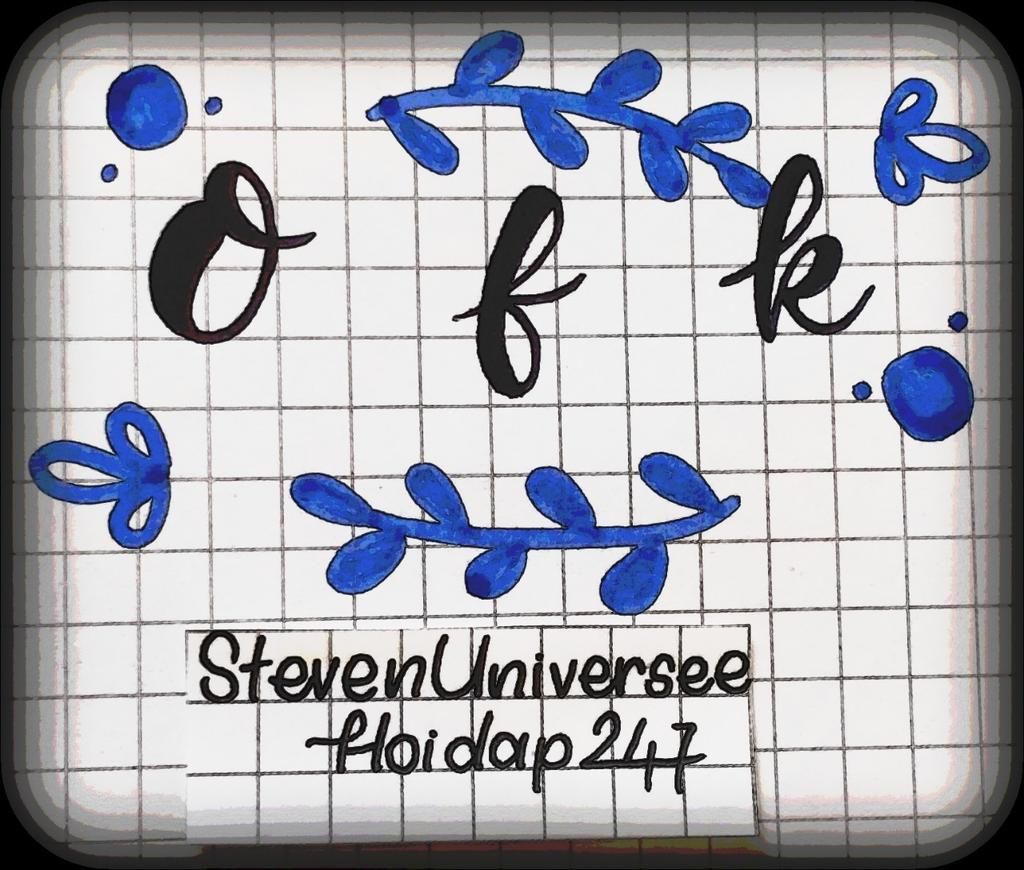 O f k
StevenUniversee
Hoidap247